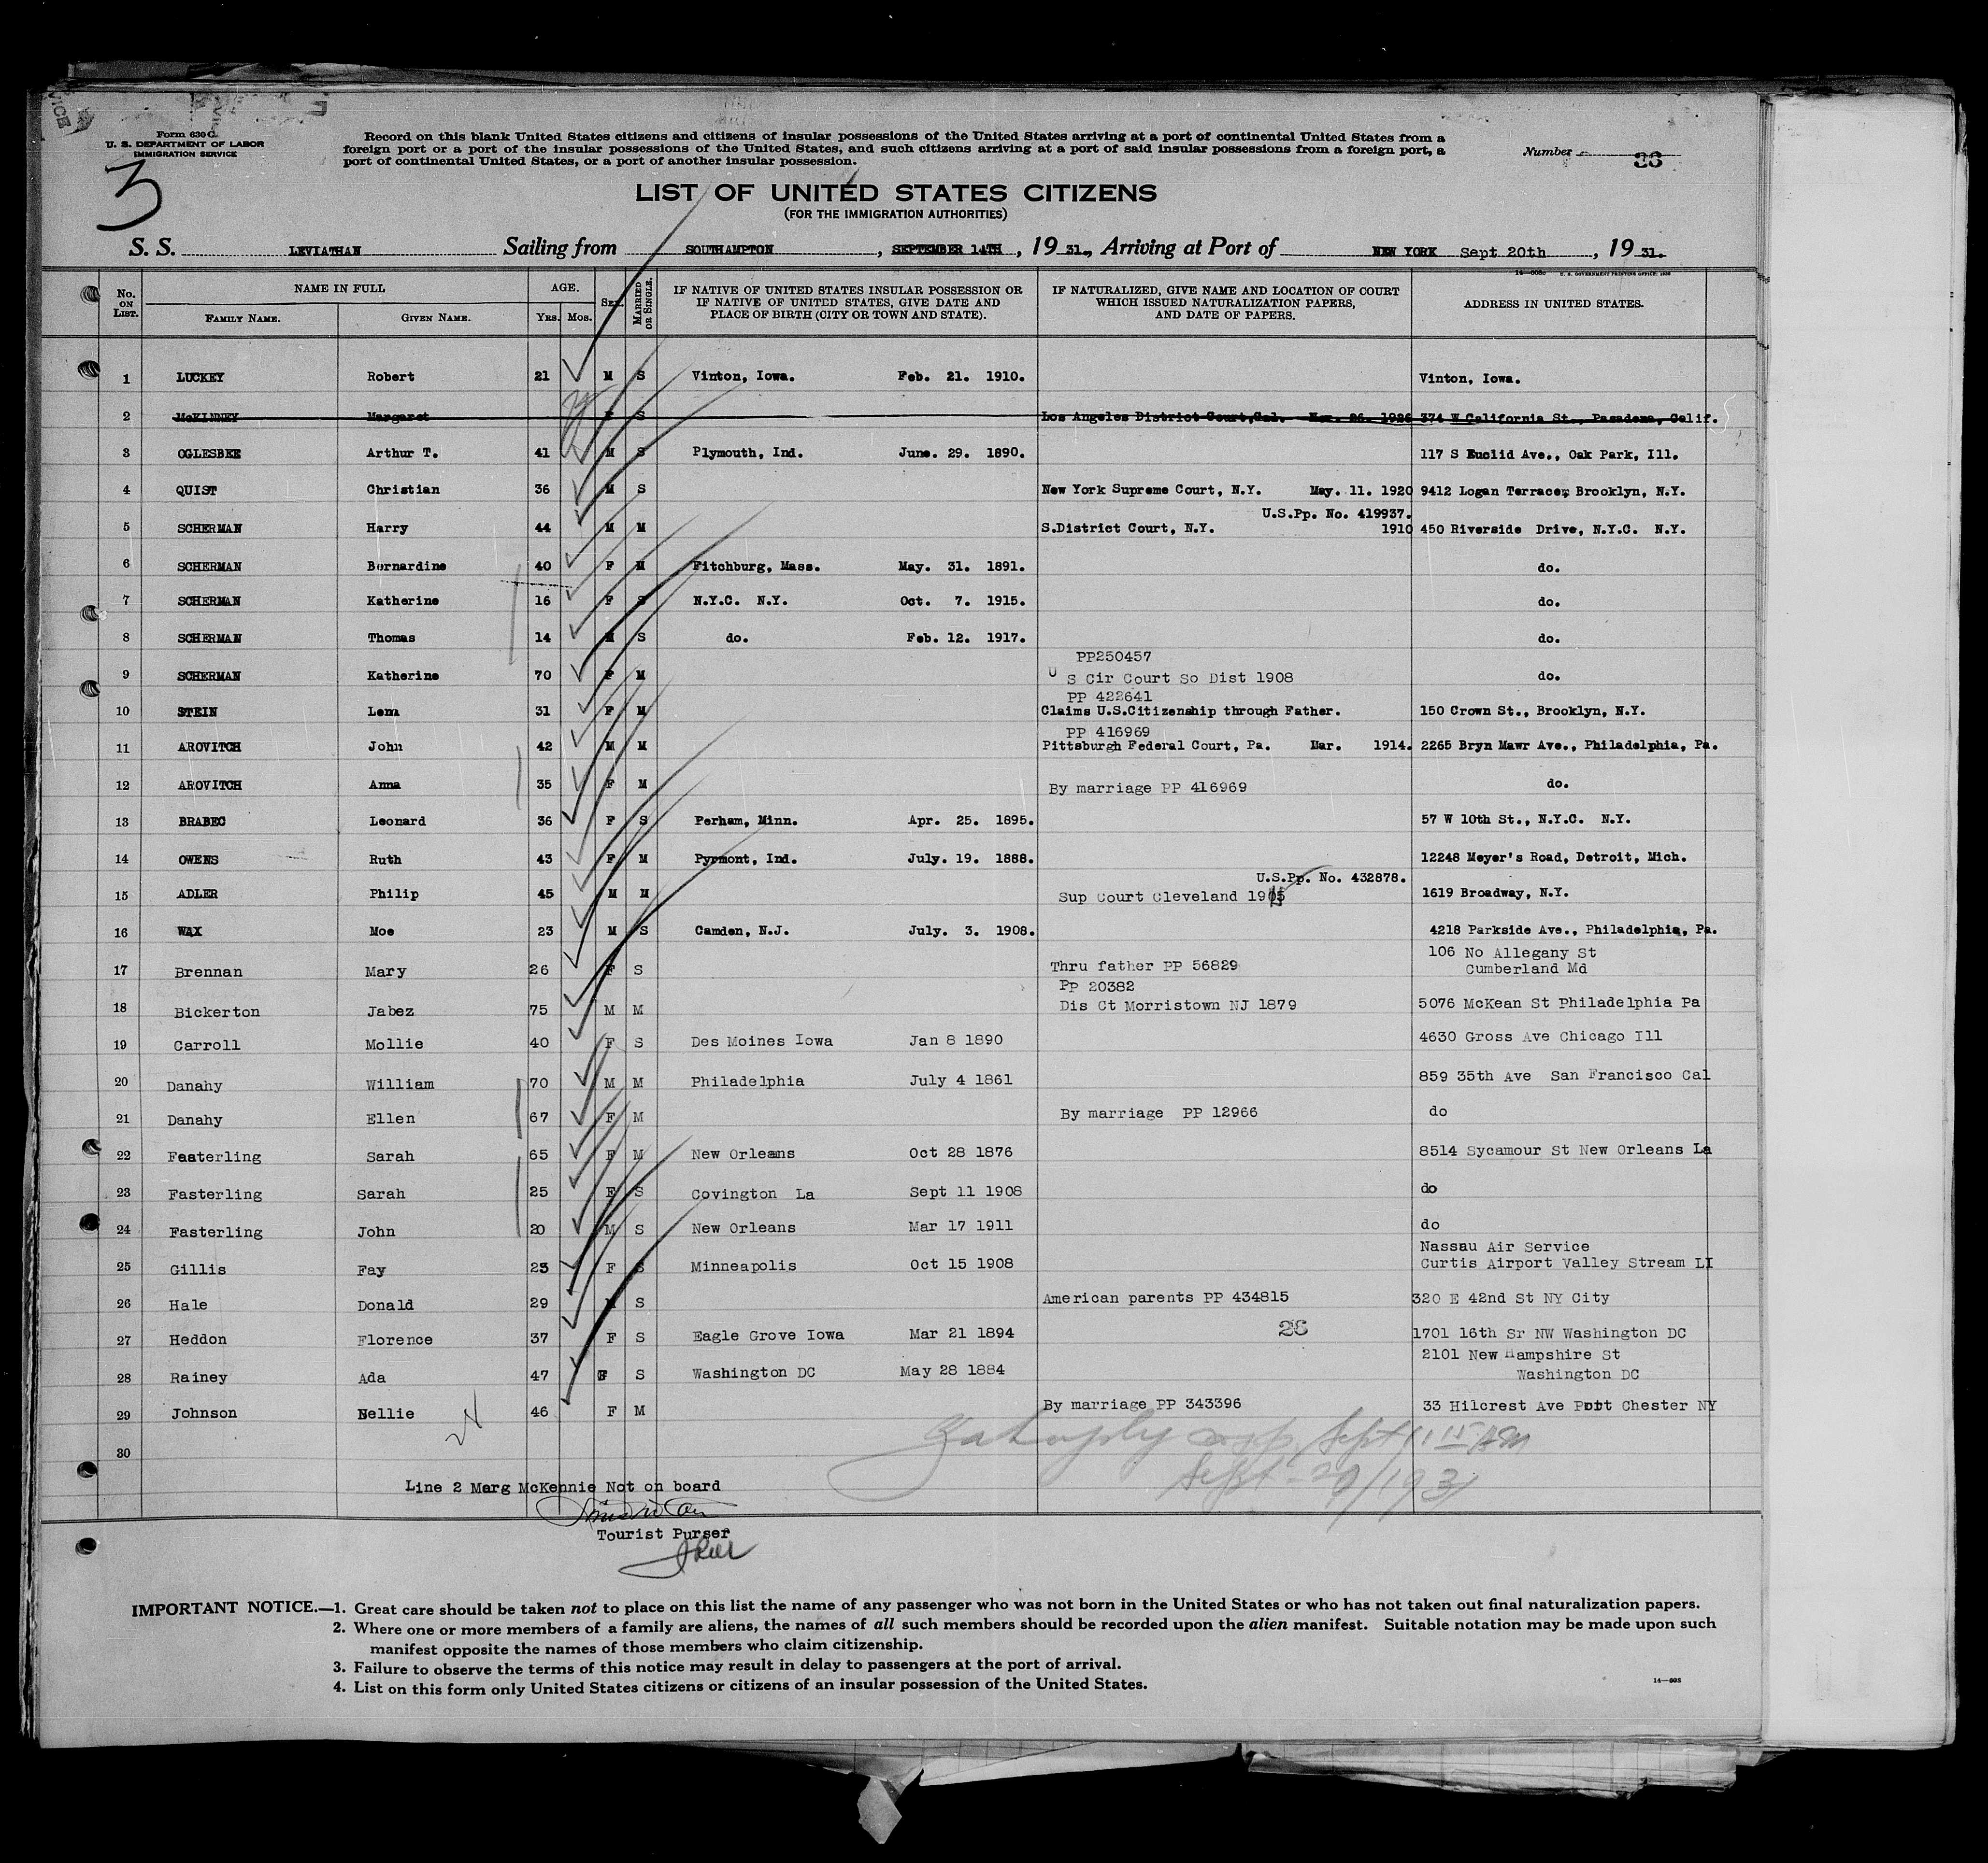 Form 630 C.
U. S. DEPARTMENT OF LABOR
IMMIGRATION SERVICE
3
Record on this blank United States citizens and citizens of insular possessions of the United States arriving at a port of continental United States from a
foreign port or a port of the insular possessions of the United States, and such citizens arriving at a port of said insular possessions from a foreign port, a
port of continental United States, or a port of another insular possession.
Number 26
LIST OF UNITED STATES CITIZENS
(FOR THE IMMIGRATION AUTHORITIES)
S. S. LEVIATHAN Sailing from SOUTHAMPTON, SEPTEMBER 14TH, 19 31., Arriving at Port of NEW YORK Sept 20th, 19 31.
No. ON LIST. NAME IN FULL FAMILY NAME. GIVEN NAME. AGE. YRS. MOS. SEX. MARRIED OR SINGLE. IF NATIVE OF UNITED STATES INSULAR POSSESSION OR IF NATIVE OF UNITED STATES, GIVE DATE AND PLACE OF BIRTH (CITY OR TOWN AND STATE). IF NATURALIZED, GIVE NAME AND LOCATION OF COURT WHICH ISSUED NATURALIZATION PAPERS, AND DATE OF PAPERS. ADDRESS IN UNITED STATES.
1 LUCKEY Robert 21 M S Vinton, Iowa. Feb. 21. 1910. Vinton, Iowa.
2 McKINNEY Margaret F S Los Angeles District Court, Cal. Mar. 26. 1926 374 W California St., Pasadena, Calif.
3 OGLESBEE Arthur T. 41 M S Plymouth, Ind. June. 29. 1890. 117 S Euclid Ave., Oak Park, Ill.
4 QUIST Christian 36 M S New York Supreme Court, N.Y. May. 11. 1920 9412 Logan Terrace, Brooklyn, N.Y.
U.S.Pp. No. 419937.
5 SCHERMAN Harry 44 M M S.District Court, N.Y. 1910 450 Riverside Drive, N.Y.C. N.Y.
6 SCHERMAN Bernardine 40 F M Fitchburg, Mass. May. 31. 1891. do.
7 SCHERMAN Katherine 16 F S N.Y.C. N.Y. Oct. 7. 1915. do.
8 SCHERMAN Thomas 14 M S do. Feb. 12. 1917. do.
PP250457
9 SCHERMAN Katherine 70 F M U S Cir Court So Dist 1908 do.
PP 422641
10 STEIN Lena 31 F M Claims U.S.Citizenship through Father. 150 Crown St., Brooklyn, N.Y.
PP 416969
11 AROVITCH John 42 M M Pittsburgh Federal Court, Pa. Mar. 1914. 2265 Bryn Mawr Ave., Philadelphia, Pa.
12 AROVITCH Anna 35 F M By marriage PP 416969 do.
13 BRABEC Leonard 36 F S Perham, Minn. Apr. 25. 1895. 57 W 10th St., N.Y.C. N.Y.
14 OWENS Ruth 43 F M Pyrmont, Ind. July. 19. 1888. 12248 Meyer's Road, Detroit, Mich.
U.S.Pp. No. 432878.
15 ADLER Philip 45 M M Sup Court Cleveland 1905 1619 Broadway, N.Y.
16 WAX Moe 23 M S Camden, N.J. July. 3. 1908. 4218 Parkside Ave., Philadelphia, Pa.
17 Brennan Mary 26 F S Thru father PP 56829 106 No Allegany St
Cumberland Md
PP 20382
18 Bickerton Jabez 75 M M Dis Ct Morristown NJ 1879 5076 McKean St Philadelphia Pa
19 Carroll Mollie 40 F S Des Moines Iowa Jan 8 1890 4630 Gross Ave Chicago Ill
20 Danahy William 70 M M Philadelphia July 4 1861 859 35th Ave San Francisco Cal
21 Danahy Ellen 67 F M By marriage PP 12966 do
22 Fasterling Sarah 65 F M New Orleans Oct 28 1876 8514 Sycamour St New Orleans La
23 Fasterling Sarah 25 F S Covington La Sept 11 1908 do
24 Fasterling John 20 M S New Orleans Mar 17 1911 do
Nassau Air Service
25 Gillis Fay 23 F S Minneapolis Oct 15 1908 Curtis Airport Valley Stream LI
26 Hale Donald 29 M S American parents PP 434815 320 E 42nd St NY City
27 Heddon Florence 37 F S Eagle Grove Iowa Mar 21 1894 26 1701 16th Sr NW Washington DC
2101 New Hampshire St
28 Rainey Ada 47 F S Washington DC May 28 1884 Washington DC
29 Johnson Nellie 46 F M By marriage PP 343396 33 Hilcrest Ave Port Chester NY
30
Sept 11 15 AM
Sept-20/1931
Line 2 Marg McKennie Not on board
Tourist Purser
IMPORTANT NOTICE.—1. Great care should be taken not to place on this list the name of any passenger who was not born in the United States or who has not taken out final naturalization papers.
2. Where one or more members of a family are aliens, the names of all such members should be recorded upon the alien manifest. Suitable notation may be made upon such
manifest opposite the names of those members who claim citizenship.
3. Failure to observe the terms of this notice may result in delay to passengers at the port of arrival.
4. List on this form only United States citizens or citizens of an insular possession of the United States.